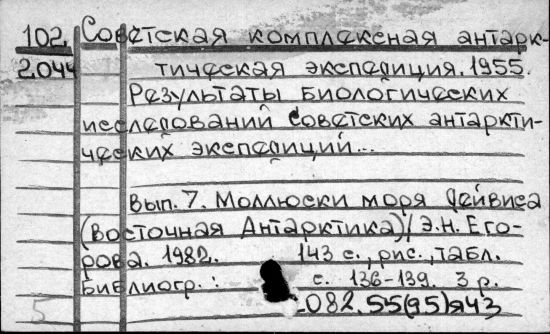 102. Советская комплексная антарк-
2.044 тическая экспедиция. 1955.
Результаты биологических
исследований советских антаркти-
ческих экспедиций...
Вып. 7. Моллюски моря Дейвиса
(восточная Антарктика)/Э.Н. Его-
рова. 1982. 143 с., рис., табл.
Библиогр.: с. 136-139. 3 р.
5 2082.55(95)я43